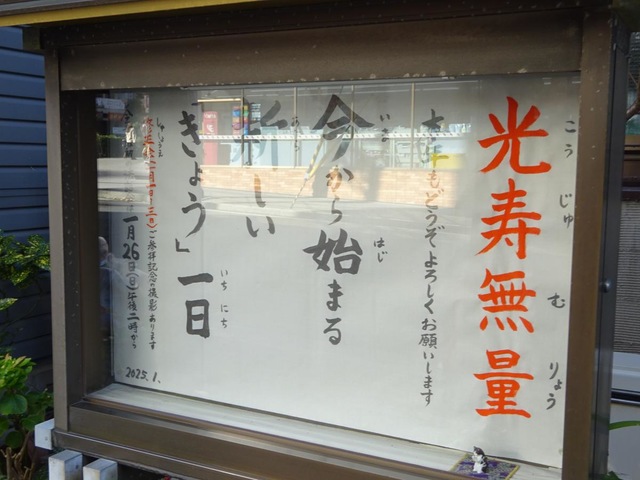 光寿無量
こうじゅむりょう
本年もどうぞよろしくお願いします
今から始まる
いま
はじ
新しい
「きょう」一日
いちにち
ご参拝記念の撮影あります
一月26日(日)午後二時から
2025.1.